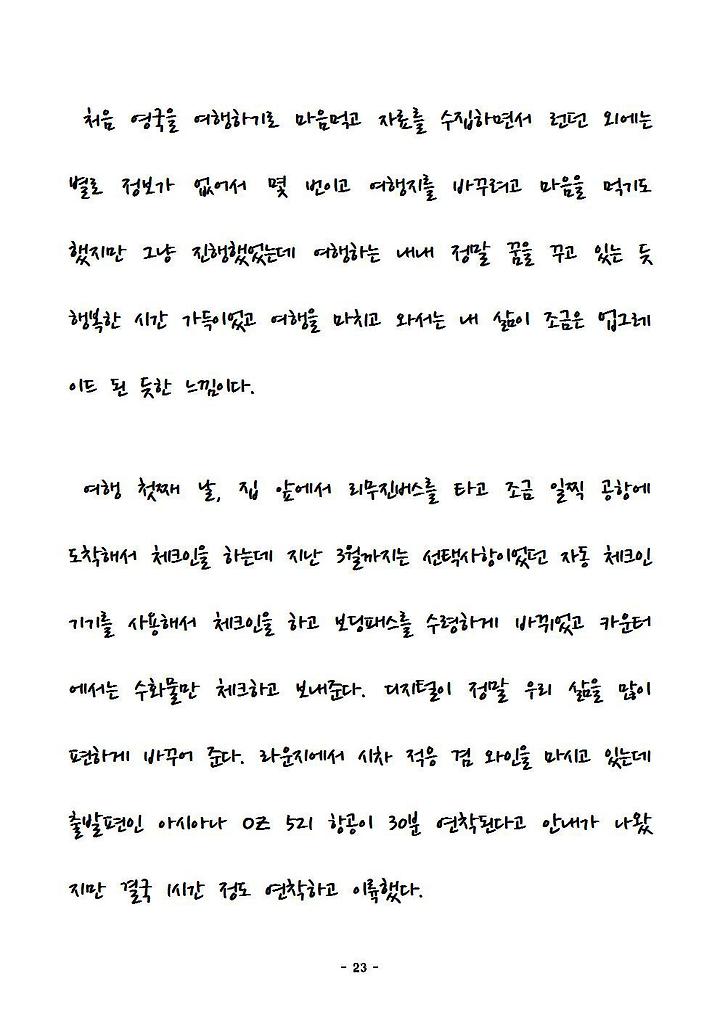 처음 영국을 여행하기로 마음먹고 자료를 수집하면서 런던 외에는
별로 정보가 없어서 몇 번이고 여행지를 바꾸려고 마음을 먹기도
했지만 그냥 진행했었는데 여행하는 내내 정말 꿈을 꾸고 있는 듯
행복한 시간 가득이었고 여행을 마치고 와서는 내 삶이 조금은 업그레
이드 된 듯한 느낌이다.
여행 첫째 날, 집 앞에서 리무진버스를 타고 조금 일찍 공항에
도착해서 체크인을 하는데 지난 3월까지는 선택사항이었던 자동 체크인
기기를 사용해서 체크인을 하고 보딩패스를 수령하게 바뀌었고 카운터
에서는 수화물만 체크하고 보내준다. 디지털이 정말 우리 삶을 많이
편하게 바꾸어 준다. 라운지에서 시차 적응 겸 와인을 마시고 있는데
출발편인 아시아나 OZ 521 항공이 30분 연착된다고 안내가 나왔
지만 결국 1시간 정도 연착하고 이륙했다.
- 23 -